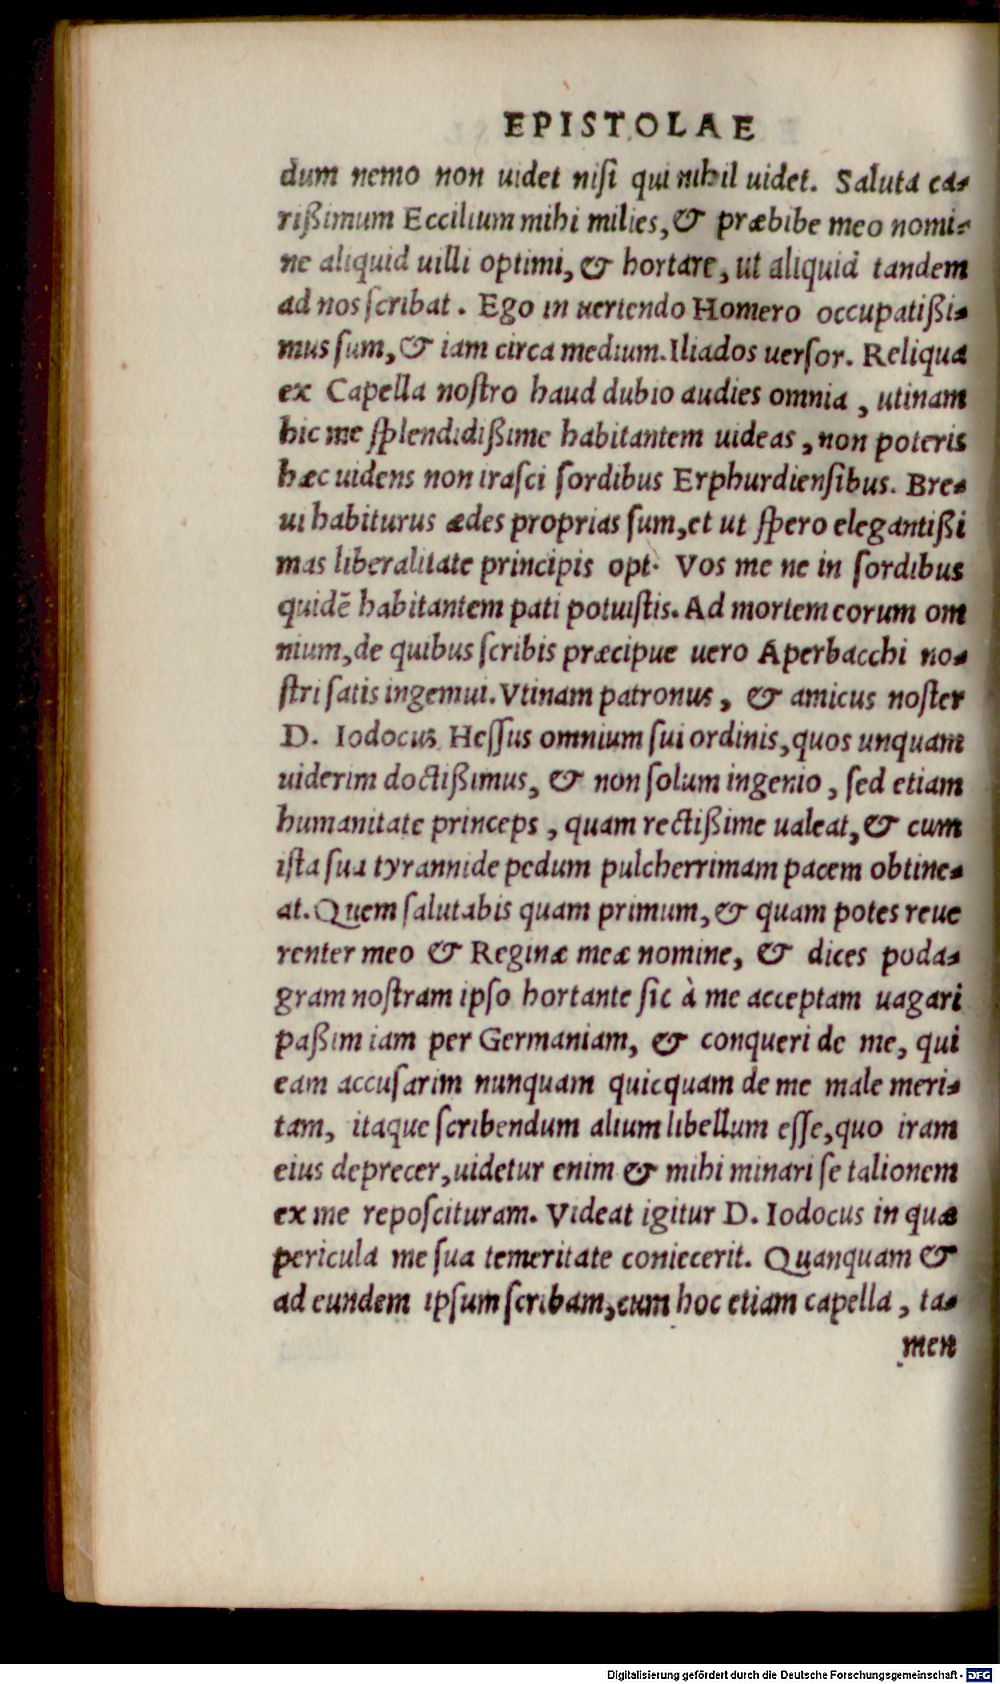 EPISTOLAE
dum nemo non uidet nisi qui nihil uidet. Saluta ca-
rißimum Eccilium mihi milies, & præbibe meo nomi-
ne aliquid uilli optimi, & hortare, ut aliquid tandem
ad nos scribat. Ego in uertendo Homero occupatißi-
mus sum, & iam circa medium. Iliados uersor. Reliqua
ex Capella nostro haud dubio audies omnia, utinam
hic me splendidißime habitantem uideas, non poteris
hæc uidens non irasci sordibus Erphurdiensibus. Bre-
ui habiturus ædes proprias sum, et ut spero elegantißi
mas liberalitate principis opt. Vos me ne in sordibus
quidē habitantem pati potuistis. Ad mortem eorum om
nium, de quibus scribis præcipue uero Aperbacchi no-
stri satis ingemui. Vtinam patronus, & amicus noster
D. Iodocus Hessus omnium sui ordinis, quos unquam
uiderim doctißimus, & non solum ingenio, sed etiam
humanitate princeps, quam rectißime ualeat, & cum
ista sua tyrannide pedum pulcherrimam pacem obtine-
at. Quem salutabis quam primum, & quam potes reue
renter meo & Reginæ meæ nomine, & dices poda-
gram nostram ipso hortante sic à me acceptam uagari
paßim iam per Germaniam, & conqueri de me, qui
eam accusarim nunquam quicquam de me male meri-
tam, itaque scribendum alium libellum esse, quo iram
eius deprecer, uidetur enim & mihi minari se talionem
ex me reposcituram. Videat igitur D. Iodocus in quæ
pericula me sua temeritate coniecerit. Quanquam &
ad eundem ipsum scribam, cum hoc etiam capella, ta-
men
Digitalisierung gefördert durch die Deutsche Forschungsgemeinschaft - DFG